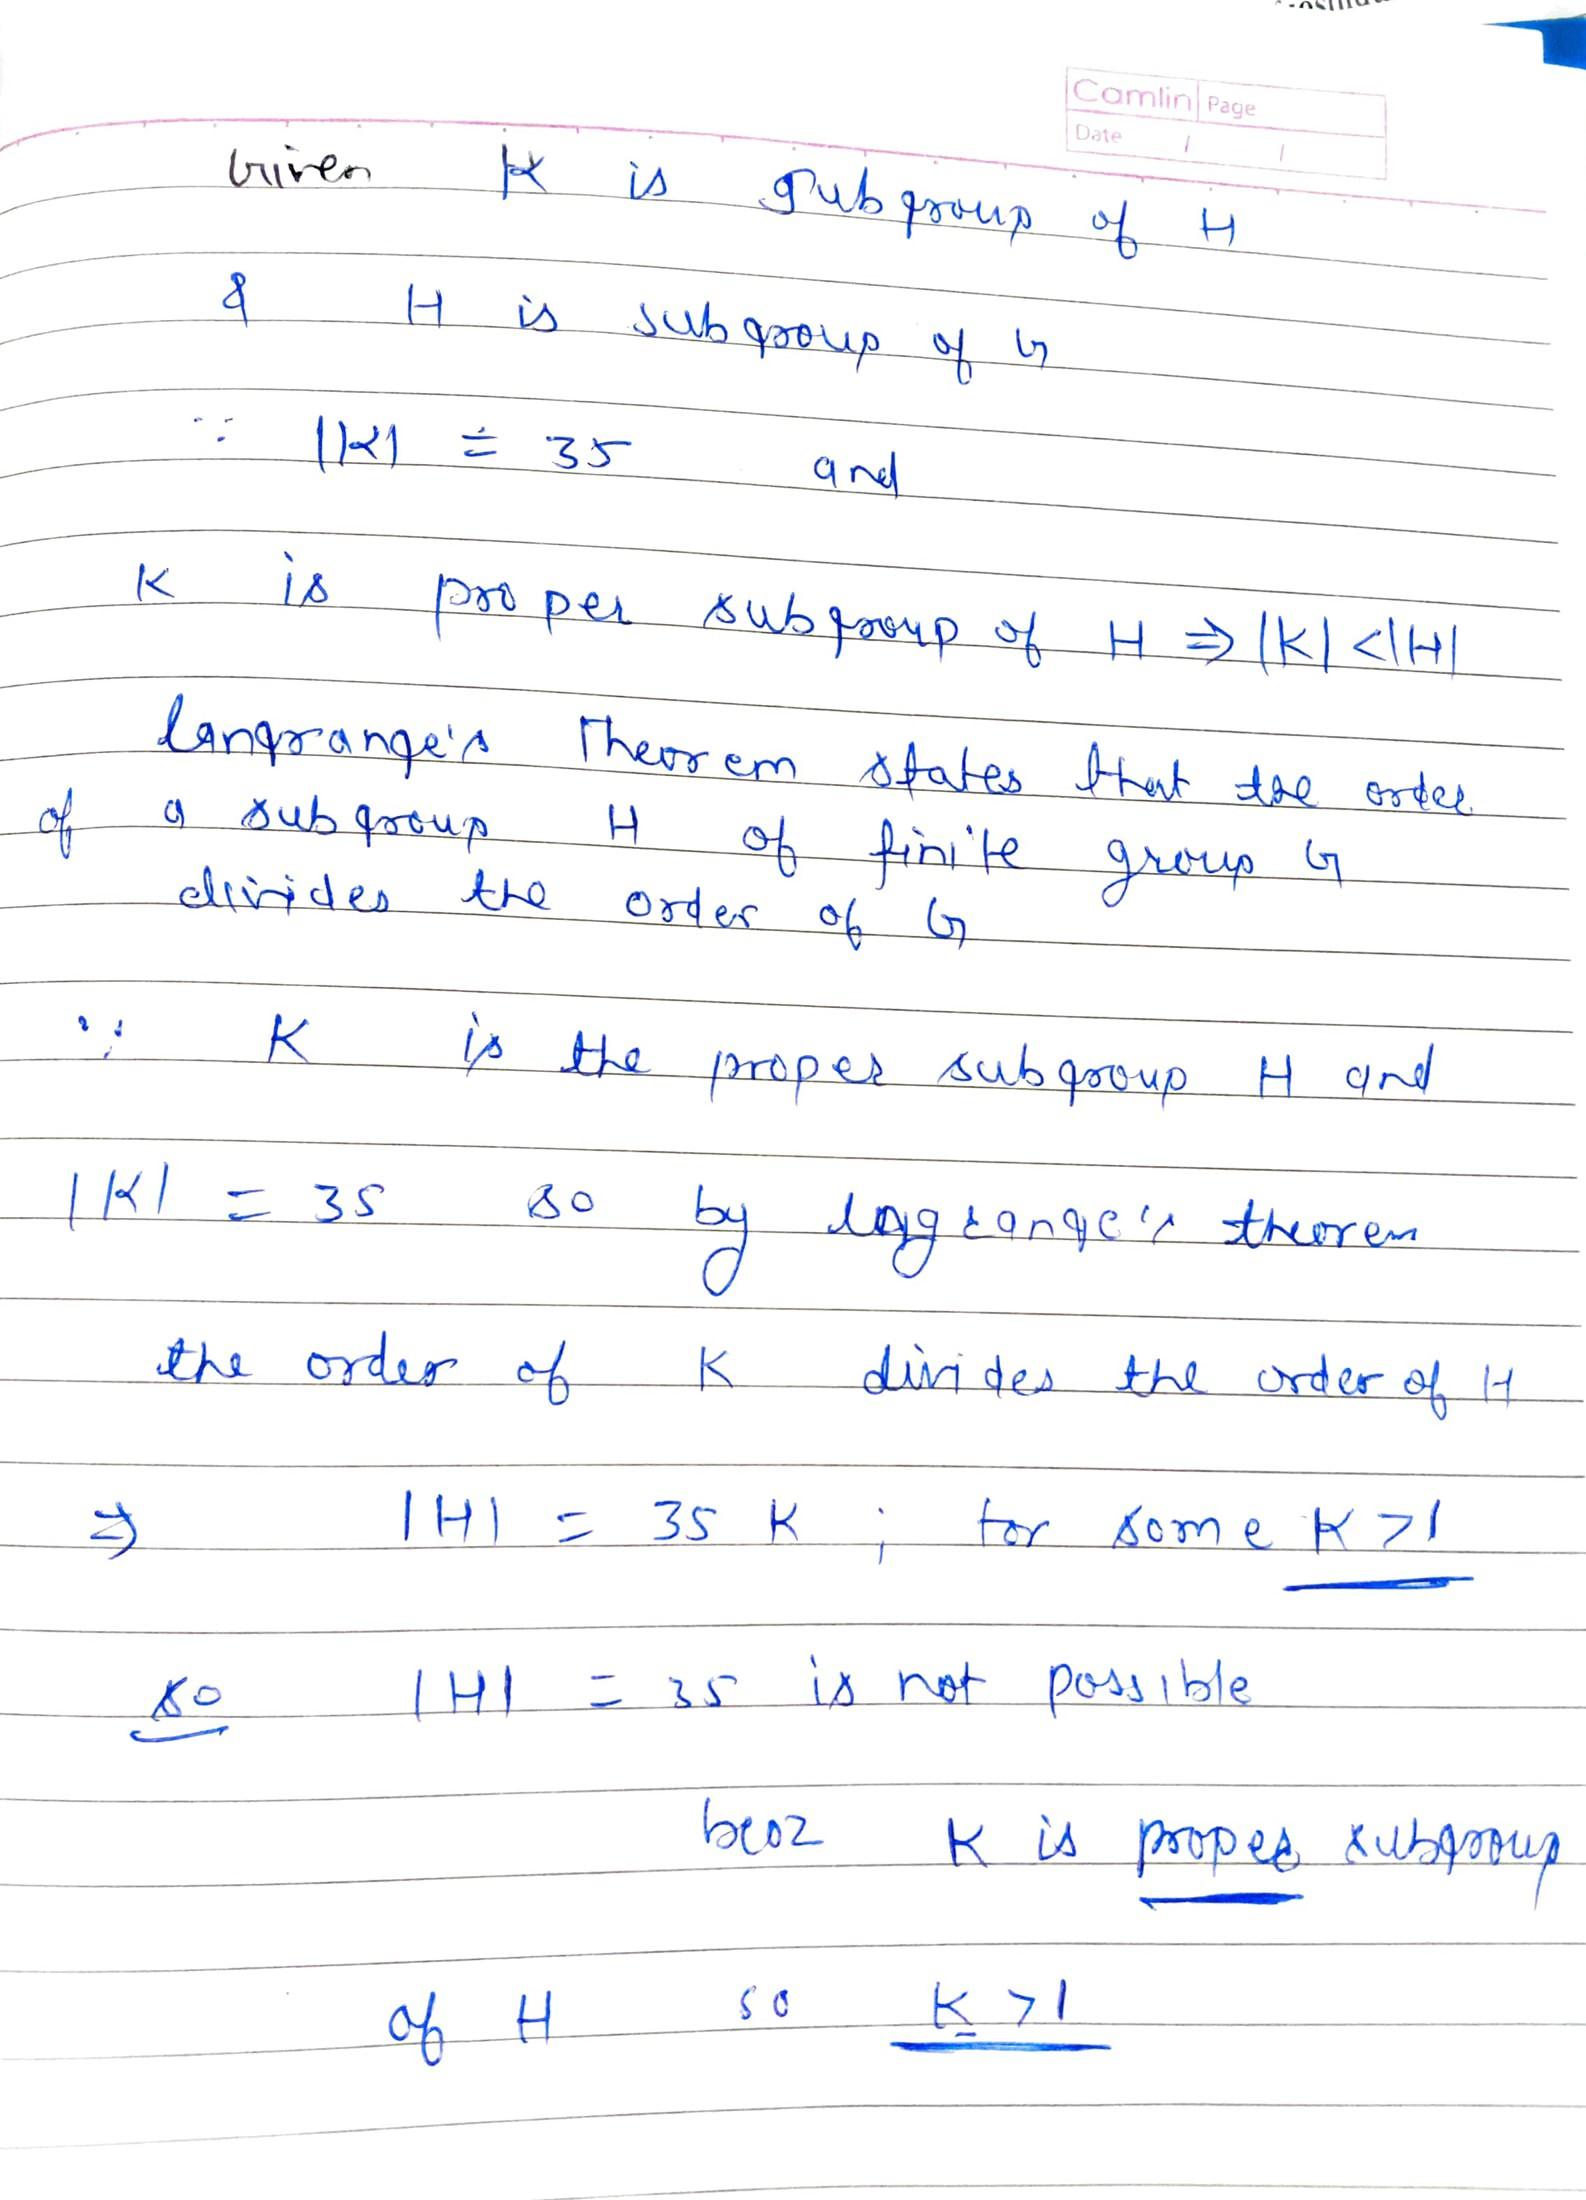 Camlin Page
Date / /
Given K is subgroup of H
& H is subgroup of G
∵ |K| = 35 and
K is proper subgroup of H ⇒ |K| <|H|
langrange's Theorem states that the order
of a subgroup H of finite group G
divides the order of G
∵ K is the proper subgroup H and
|K| = 35 so by lagrange's theorem
the order of K divides the order of H
⇒ |H| = 35 K ; for some K >1
so |H| = 35 is not possible
bcoz K is proper subgroup
of H so K >1